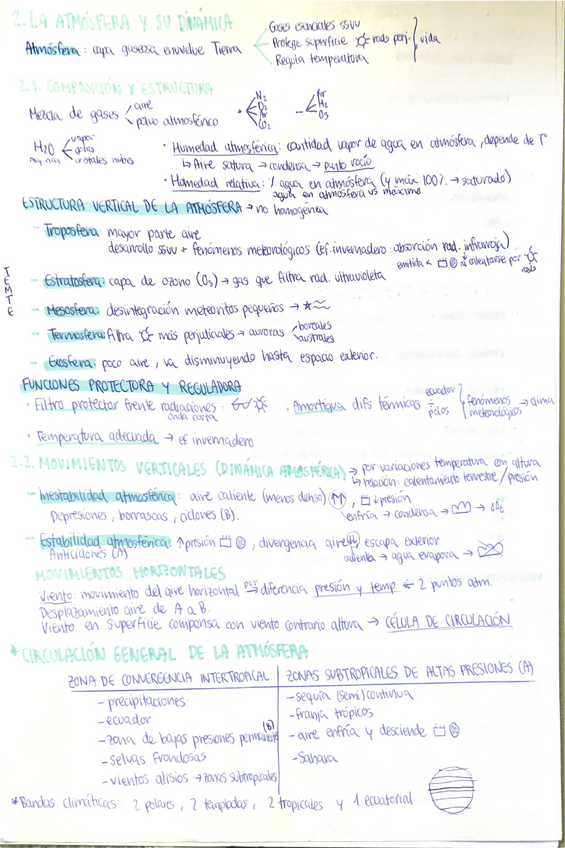 2. LA ATMÓSFERA Y SU DINÁMICA
Gases esenciales ssvv
Atmósfera: capa gaseosa envuelve Tierra
Protege superficie rads perj. vida
Regula temperatura
2.1. COMPOSICIÓN Y ESTRUCTURA
Mezcla de gases aire
polvo atmosférico
+ N2
O2
Ar
CO2
- Ar
H2
O3
H2O vapor
gotas
cristales nubes
· Humedad atmosférica: cantidad vapor de agua en atmósfera, depende de Tº
↳ Aire satura → condensa → punto rocío
· Humedad relativa: % agua en atmósfera (y máx 100% → saturado)
agua en atmósfera vs máximo
ESTRUCTURA VERTICAL DE LA ATMÓSFERA → no homogénea
- Troposfera: mayor parte aire
desarrollo ssvv + fenómenos meteorológicos (ef. invernadero: absorción rad. infrarroja)
emitida calentarse por rads
T
E
M
T
E
- Estratosfera: capa de ozono (O3) → gas que filtra rad. ultravioleta
- Mesosfera: desintegración meteoritos pequeños →
- Termosfera: filtra más perjudiciales → auroras boreales
australes
- Exosfera: poco aire, va disminuyendo hasta espacio exterior.
FUNCIONES PROTECTORA Y REGULADORA
· Filtro protector frente radiaciones:
onda corta
· Amortigua difs térmicas ecuador
polos
fenómenos meteorológicos → clima
· Temperatura adecuada → ef invernadero
2.2. MOVIMIENTOS VERTICALES (DINÁMICA ATMOSFÉRICA) → por variaciones temperatura con altura
↳ relación: calentamiento terrestre / presión
- Inestabilidad atmosférica: aire caliente (menos denso) ↑↑, ↓presión
Depresiones, borrascas, ciclones (B).
enfría → condensa → →
- Estabilidad atmosférica: ↑presión, divergencia aire ↓↓ escapa exterior
Anticiclones (A)
calienta → agua evapora →
MOVIMIENTOS HORIZONTALES
Viento: movimiento del aire horizontal diferencia presión y temp 2 puntos atm.
Desplazamiento aire de A a B.
Viento en superficie compensa con viento contrario altura → CÉLULA DE CIRCULACIÓN
* CIRCULACIÓN GENERAL DE LA ATMÓSFERA
ZONA DE CONVERGENCIA INTERTROPICAL
- precipitaciones
- ecuador
- zona de bajas presiones permanente (B)
- selvas frondosas
- vientos alisios → zonas subtropicales
ZONAS SUBTROPICALES DE ALTAS PRESIONES (A)
- sequía (semi)continua
- franja trópicos
- aire enfría y desciende
- Sahara
* Bandas climáticas: 2 polares, 2 templadas, 2 tropicales y 1 ecuatorial